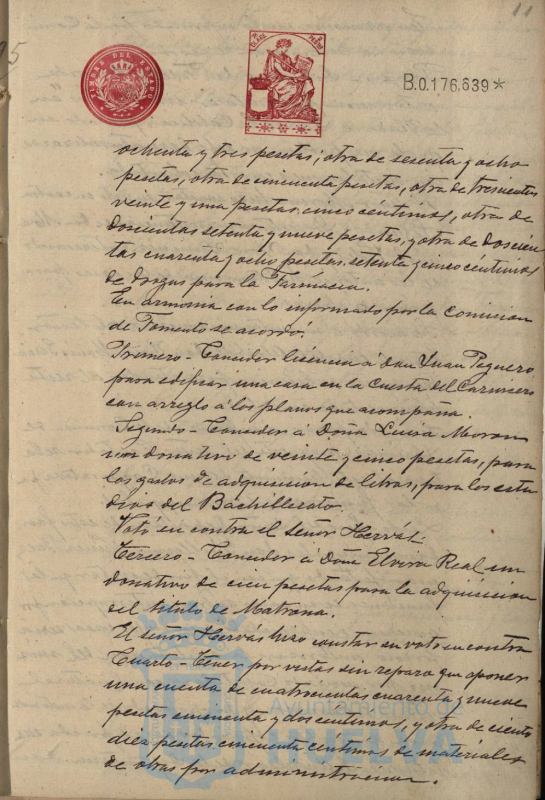 11
95
TIMBRE DEL ESTADO
CLASE
B.0.176,639*
ochenta y tres pesetas; otra de sesenta y ocho
pesetas, otra de cincuenta pesetas, otra de trescientas
veinte y una pesetas, cinco céntimos, otras de
doscientas setenta y nueve pesetas, y otra de doscien
tas cuarenta y ocho pesetas, setenta y cinco céntimos
de drogas para la Farmacia.
En armonia con lo informado por la Comision
de Fomento se acordó.
Primero - Conceder licencia á don Juan Peguero
para edificar una casa en la Cuesta del Carnicero
con arreglo á los planos que acompaña.
Segundo - Conceder á Doña Luisa Moran
un donativo de veinte y cinco pesetas, para
los gastos de adquisicion de libros, para los estu
dios del Bachillerato.
Votó en contra el señor Hervás.
Tercero - Conceder á Doña Elvira Real un
donativo de cien pesetas para la adquisicion
del titulo de Matrona.
El señor Hervás hizo constar su voto en contra
Cuarto - Tener por vistas sin reparo que oponer
una cuenta de cuatrocientas cuarenta y nueve
pesetas cincuenta y dos centimos, y otra de ciento
diez pesetas cincuenta centimos de materiales
de obras por administracion.
Ayuntamiento de
HUELVA